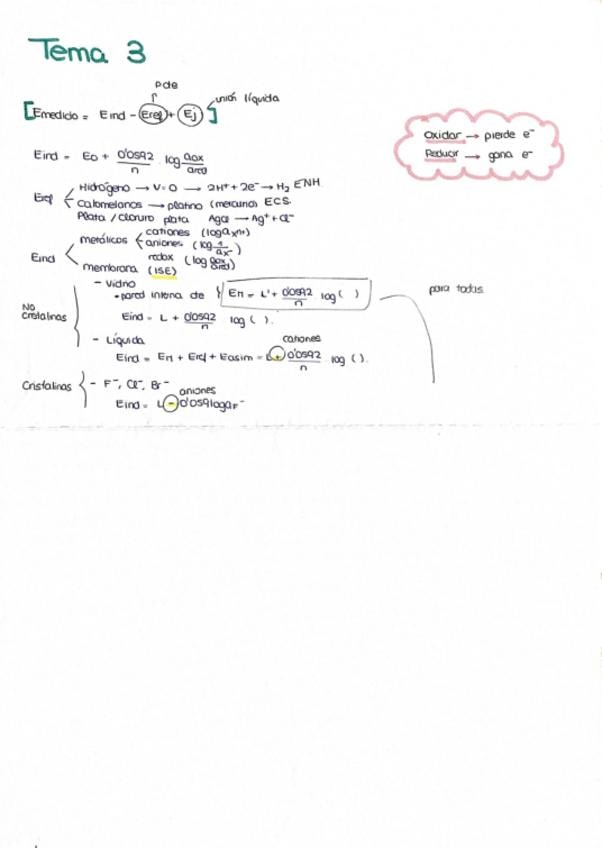 Tema 3
pde
unión líquida
[Emedido = Eind - Eref + Ej]
Oxidar → pierde e⁻
Reducir → gana e⁻
Eind = E0 + 0'0592/n · log aox/ared
Eref
Hidrógeno → V=0 → 2H⁺ + 2e⁻ → H₂ ENH
Calomelanos → platino (mercurio) ECS.
Plata / Cloruro plata AgCl → Ag⁺ + Cl⁻
Eind
metálicos
cationes (log axⁿ⁺)
aniones (log 1/ax⁻)
redox (log aox/ared)
membrana (ISE)
No cristalinas
- Vidrio
• pared interna de { Em = L' + 0'0592/n · log ( )
para todas.
Eind = L + 0'0592/n · log ( ).
- Líquida
cationes
Eind = Em + Eref + Easim = L + 0'0592/n · log ( ).
Cristalinas
- F⁻, Cl⁻, Br⁻
aniones
Eind = L - 0'059 log aF⁻